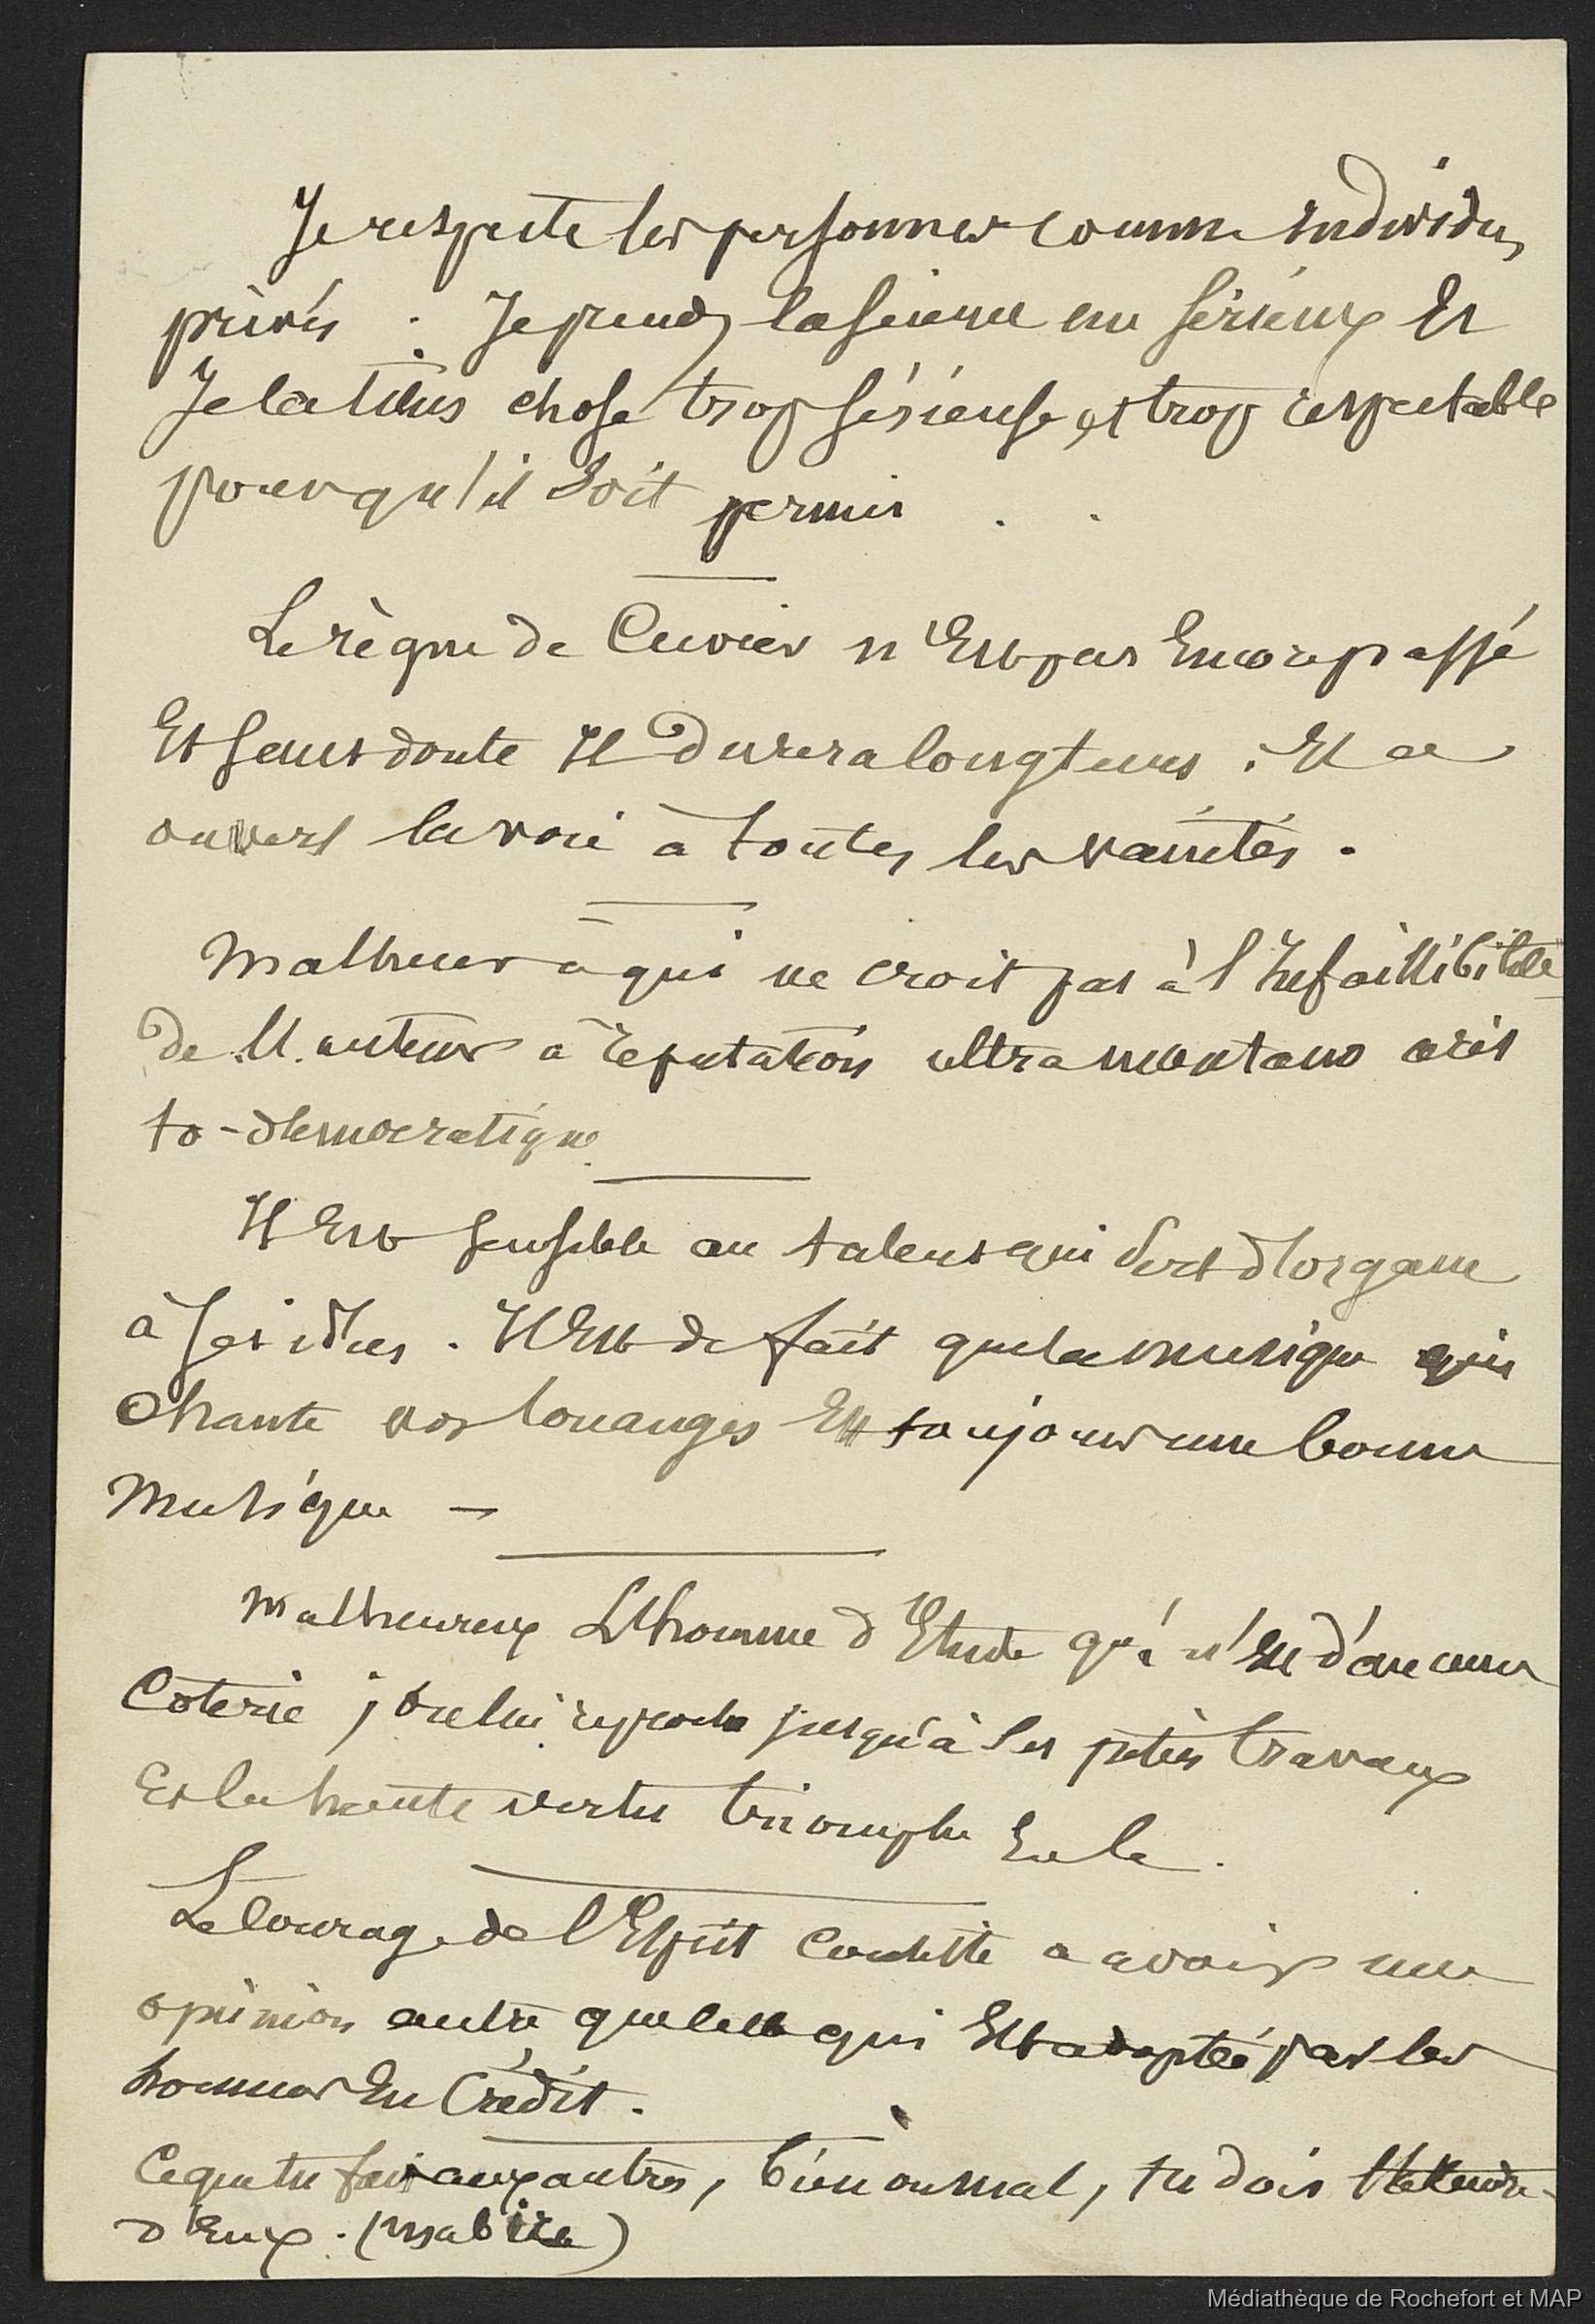 Je respecte les personnes comme individus
privés. Je prends la science au sérieux Et
Je la tiens chose trop sérieuse et trop respectable
pour qu'il soit permis . .
Le règne de Cuvier n'Est pas Encore passé
Et sans doute Il durera longtems. Il a
ouvert la voie à toutes les vanités.
Malheur à qui ne croit pas à l'Infaillibilité
de M. auteur à réputation ultramontano aris
to-démocratique.
Il Est sensible au talent qui sert d'organe
à ses idées. Il Est de fait que la musique qui
Chante vos louanges Est toujours une bonne
Musique —
Malheureux L'homme d'Etude qui n'Est d'aucune
Coterie, on lui reproche jusqu'à ses petits travaux
Et la haute vertu triomphe
Le Courage de l'Esprit Consiste a avoir une
opinion autre que celle qui Est adoptée par les
hommes En Crédit.
Ce que tu fais aux autres, bien ou mal, tu dois l'attendre
d'Eux.
Médiathèque de Rochefort et MAP